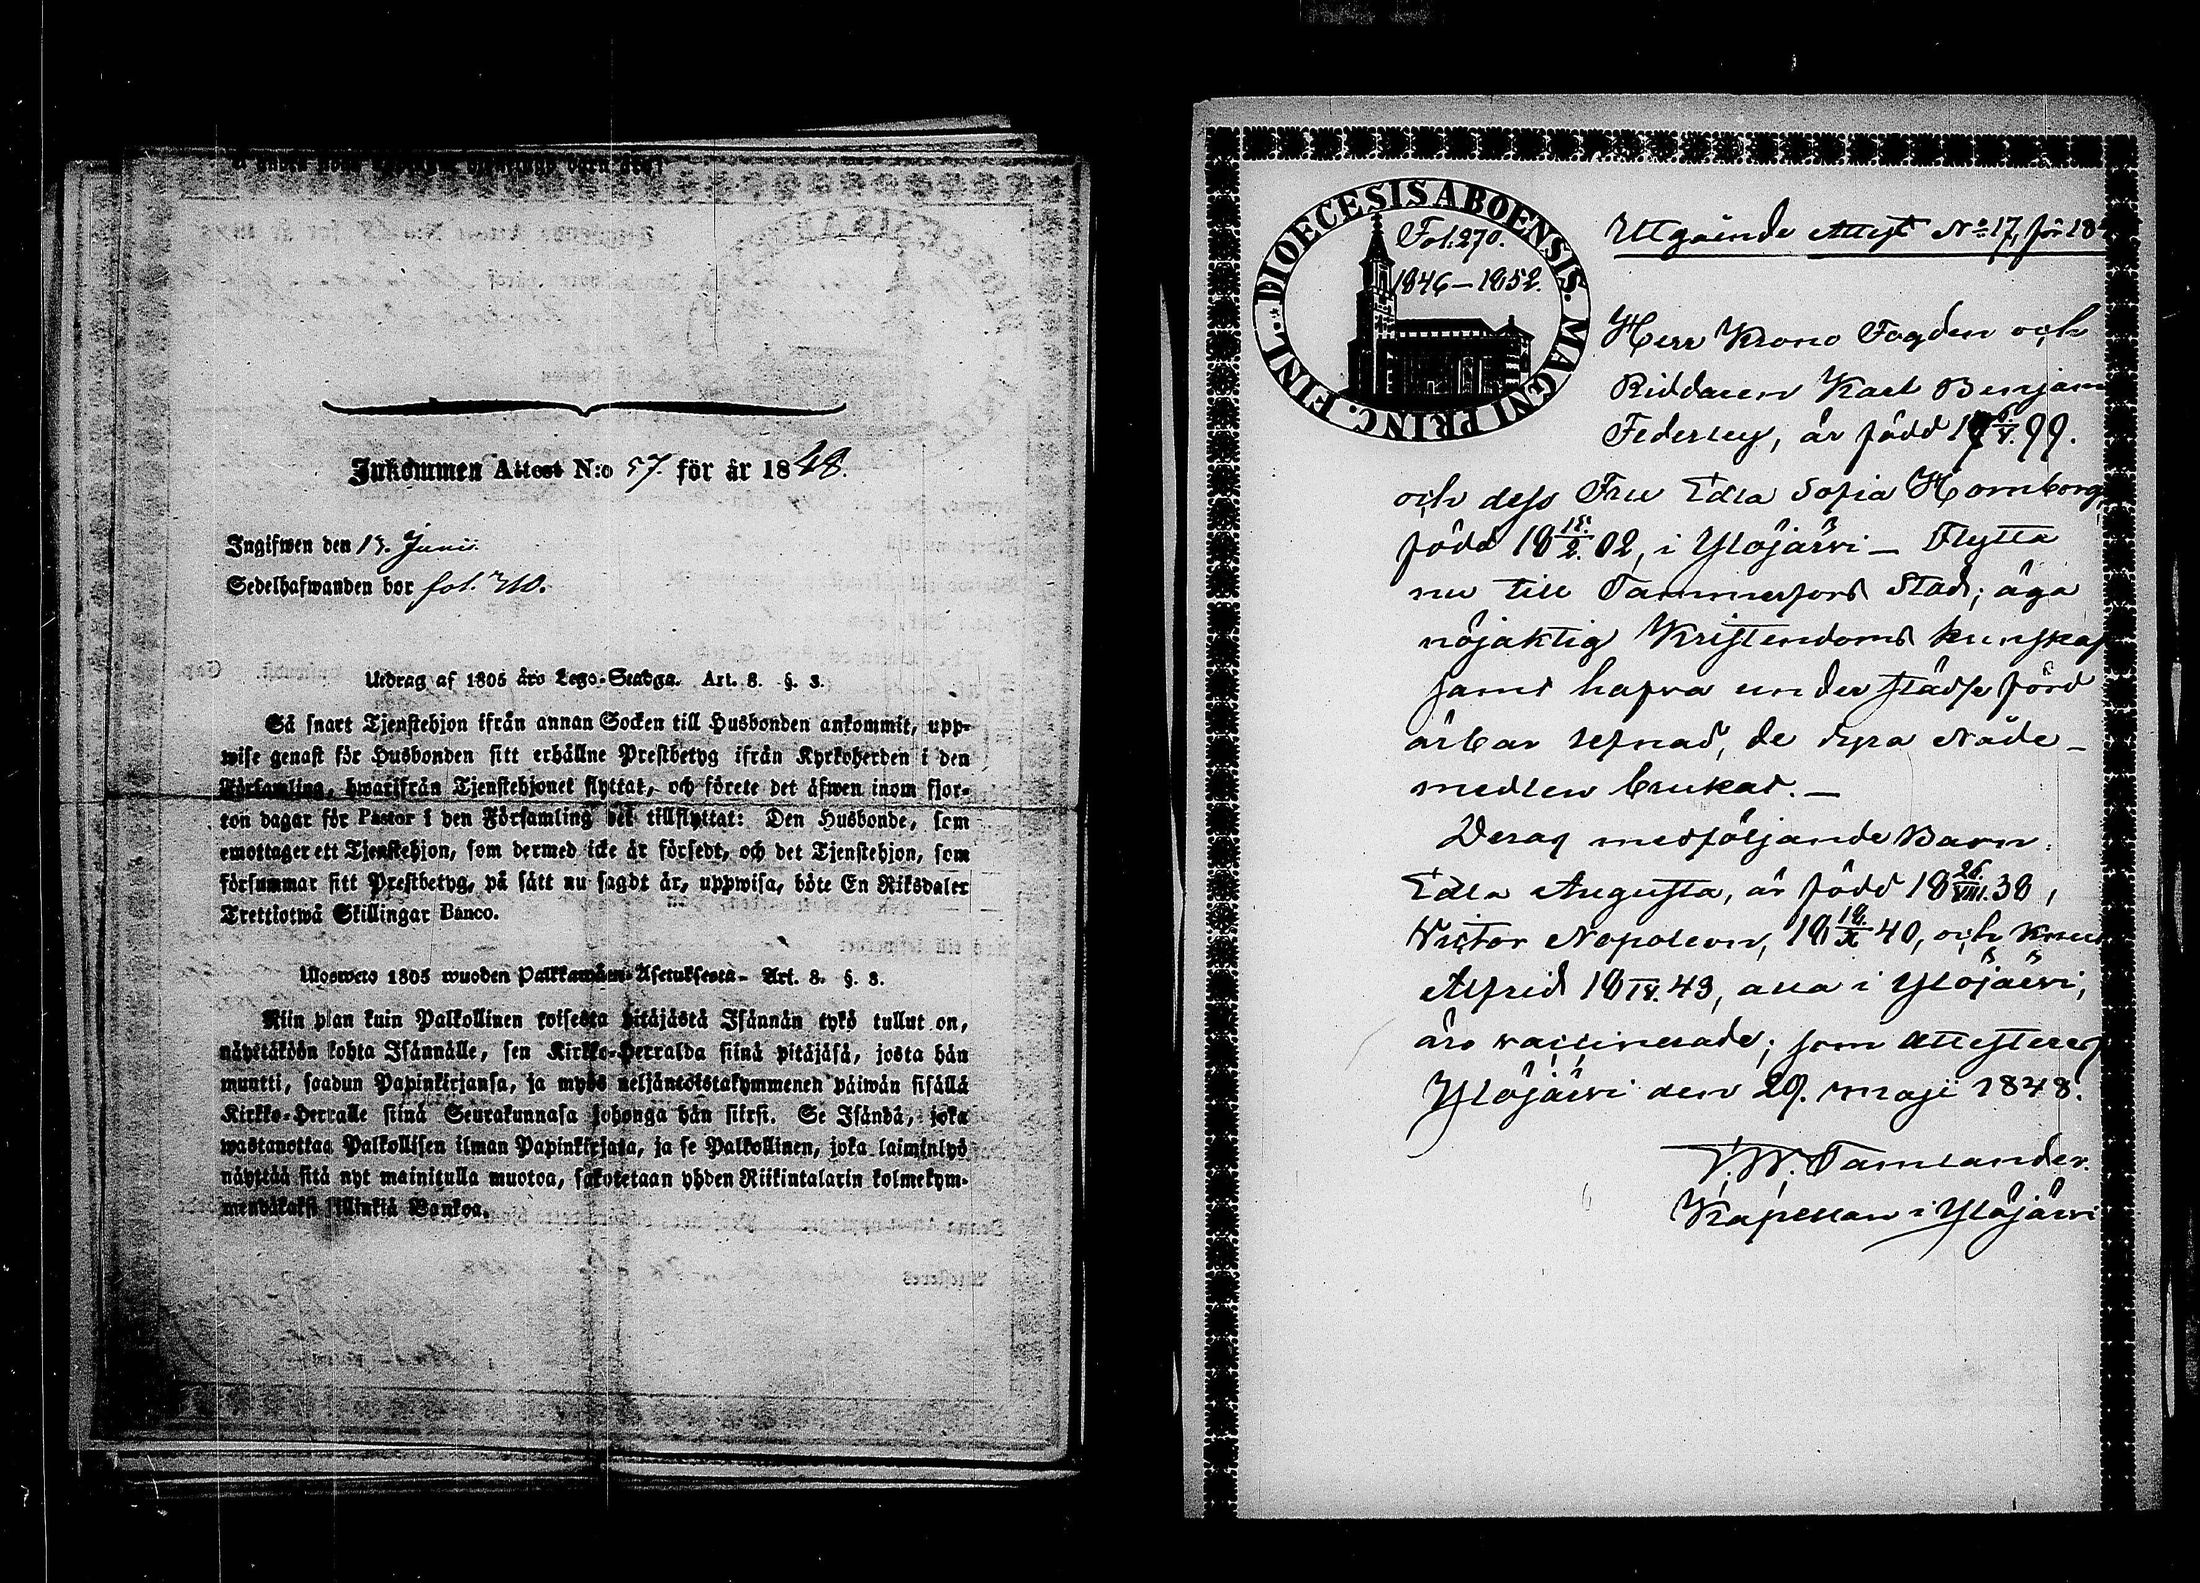 Inkommen Attest N:o 57. för år 1848.
Ingifwen den 15. Junii.
Sedelhafwanden bor fol. 210.
Utdrag af 1805 års Lego-Stadga. Art. 8. §. 3.
Så snart Tjenstehjon ifrån annan Socken till Husbonden ankommit, upp-
wise genast för Husbonden sitt erhållne Prestbetyg ifrån Kyrkoherden i den
Församling, hwarifrån Tjenstehjonet flyttat, och förete det äfwen inom fjor-
ton dagar för Pastor i den Församling det tillflyttat: Den Husbonde, som
emottager ett Tjenstehjon, som dermed icke är försedt, och det Tjenstehjon, som
försummar sitt Prestbetyg, på sätt nu sagdt är, uppwisa, böte En Riksdaler
Trettiotwå Skillingar Banco.
Uloswето 1805 wuoden Palkkawäen-Asetuksesta. Art. 8. §. 3.
Niin pian kuin Palkollinen toisesta pitäjästä Isännän tykö tullut on,
näyttäköön kohta Isännälle, sen Kirkko-Herralda siinä pitäjäsä, josta hän
muutti, saadun Papinkirjansa, ja myös neljäntoistakymmenen päiwän sisällä
Kirkko-Herralle siinä Seurakunnasa johonga hän siirsi. Se Isändä, joka
wastanottaa Palkollisen ilman Papinkirjata, ja se Palkollinen, joka laiminlyö
näyttää sitä nyt mainitulla muotoa, sakotetaan yhden Riikintalarin kolmekym-
mendäkaksi skillinkiä Bankoa.
DIOECESIS ABOENSIS. MAGNI PRINC. FINL.
Fol. 270.
1846–1852.
Utgående Attest No 17, för 184
Herr Krono Fogden och
Riddaren Karl Benjam
Federley, är född 17 6/V. 99.
och dess Fru Edla Sofia Homborg,
född 18 15./2. 02, i Ylöjärvi – Flytta
nu till Tammerfors Stad; äga
nöjaktig Kristendoms kunskap
samt hafva under städse förd
ärbar lefnad, de dyra Nåde-
medlen brukat. –
Deras medföljande Barn:
Edla Augusta, är född 18 26./VIII. 38,
Victor Napoleon, 18 19./X 40, och Knut
Alfrid 18 IV. 43, alla i Ylöjärvi,
äro vaccinerade; som attesteras
Ylöjärvi den 29. maji 1848.
Tamlander.
Kapellan i Ylöjärvi